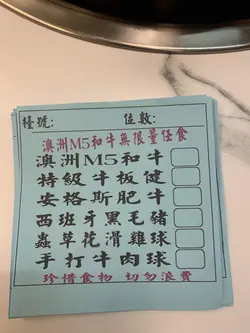 檯號: 位數:
澳洲M5和牛無限量任食
澳洲M5和牛
特級牛板健
安格斯肥牛
西班牙黑毛豬
蟲草花滑雞球
手打牛肉球
珍惜食物 切勿浪費